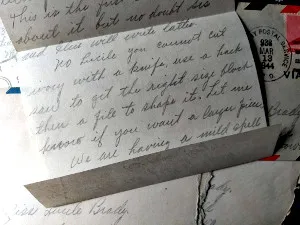 this is the just
about it but no doubt Sis
and Zeus will write later
No Lucile you cannot cut
ivory with a knife, use a hack
saw to git the right size block
then a file to shape it. Let me
know if you want a larger piece
We are having a mild spell
POSTAL
MAR
13
1944
Brady
Miss Lucile Brady